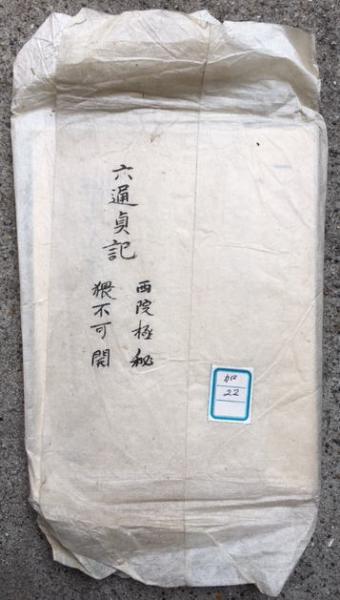 六通貞記
西院極秘
猥不可開
加
22